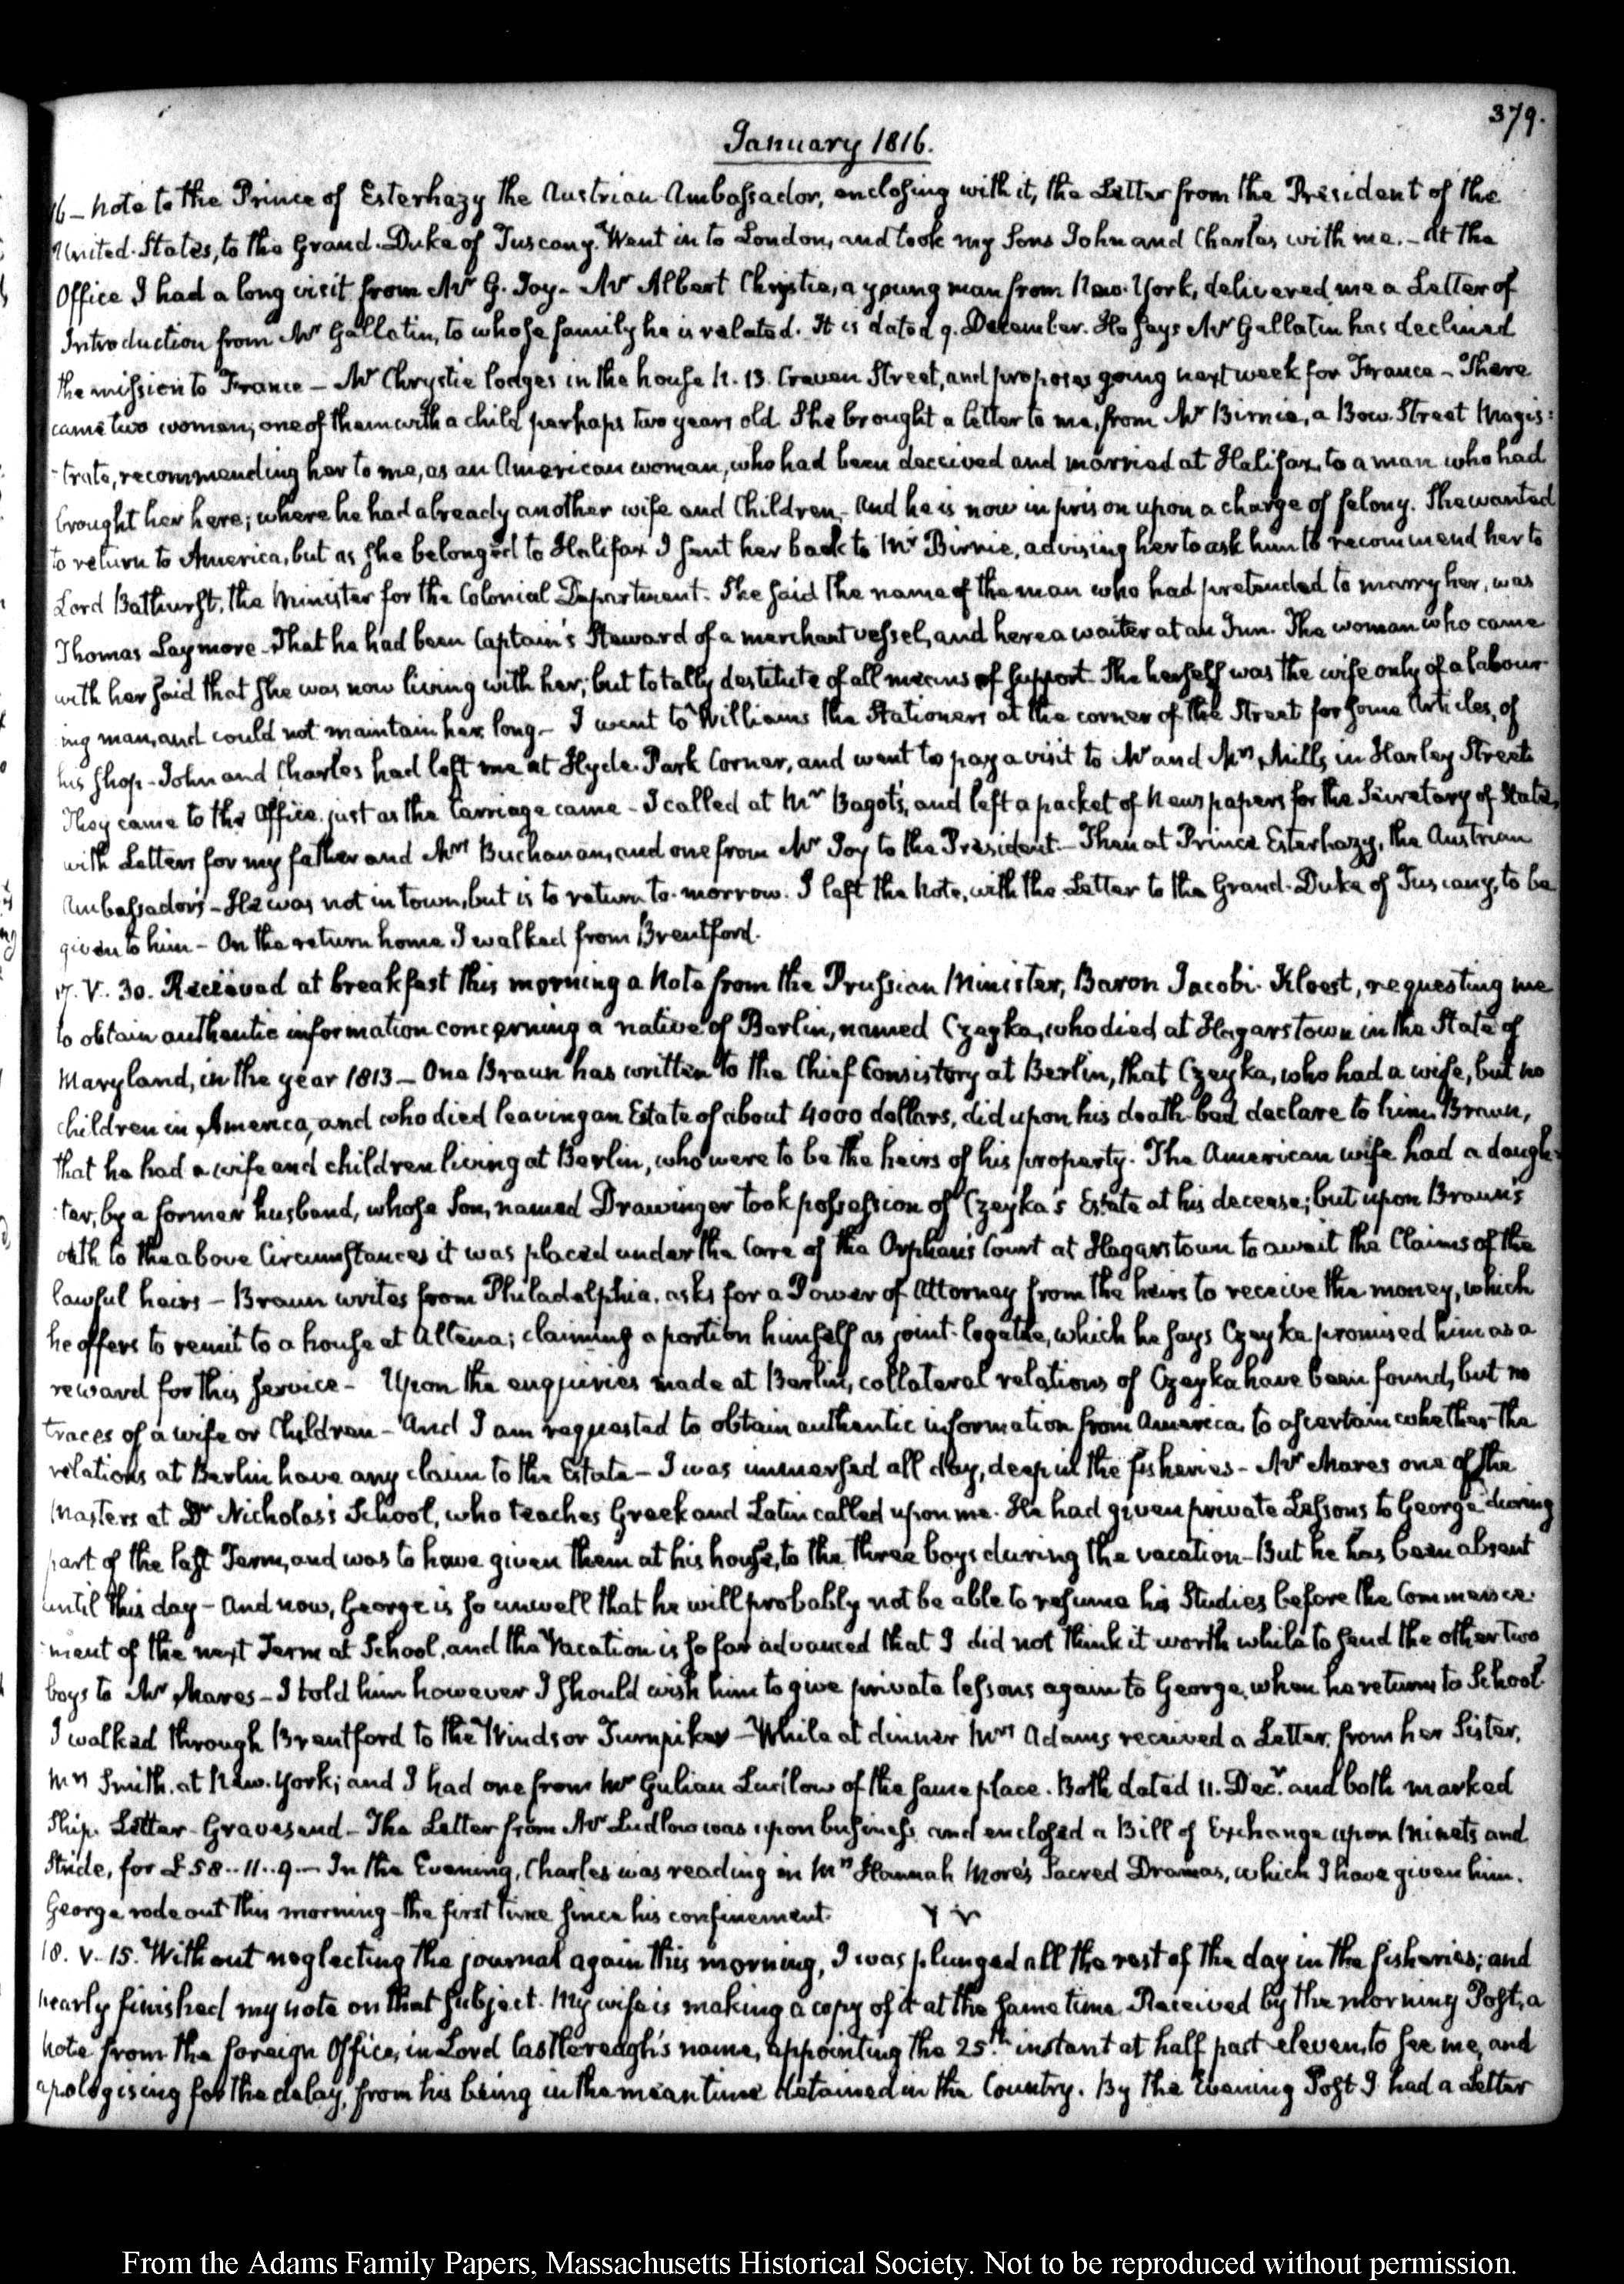 379.
January 1816.
16 - Note to the Prince of Esterhazy the Austrian Ambassador, enclosing with it, the Letter from the President of the
United States, to the Grand-Duke of Tuscany. Went in to London, and took my Sons John and Charles with me. - At the
Office I had a long visit from Mr G. Joy - Mr Albert Chrystie, a young man from New-York, delivered me a Letter of
Introduction from Mr Gallatin, to whose family he is related. It is dated 9. December. He says Mr Gallatin has declined
the mission to France - Mr Chrystie lodges in the house N. 13. Craven Street, and proposes going next week for France - There
came two women; one of them with a child perhaps two years old. She brought a letter to me, from Mr Birnie, a Bow-Street Magis:
-trate, recommending her to me, as an American woman, who had been deceived and married at Halifax, to a man who had
brought her here; where he had already another wife and Children - And he is now in prison upon a charge of felony. She wanted
to return to America, but as she belonged to Halifax I sent her back to Mr Birnie, advising her to ask him to recommend her to
Lord Bathurst, the Minister for the Colonial Department. She said the name of the man who had pretended to marry her, was
Thomas Laymore - That he had been Captain's Steward of a merchant vessel, and here a waiter at an Inn. The woman who came
with her said that she was now living with her; but totally destitute of all means of support - She herself was the wife only of a labour-
ing man, and could not maintain her long - I went to Williams the Stationers at the corner of the Street for some Articles, of
his shop - John and Charles had left me at Hyde-Park Corner, and went to pay a visit to Mr and Mrs Mills, in Harley Street.
They came to the Office just as the Carriage came - I called at Mr Bagot's, and left a packet of Newspapers for the Secretary of State,
with Letters for my father and Mrs Buchanan, and one from Mr Joy to the President - Then at Prince Esterhazy, the Austrian
Ambassador's - He was not in town, but is to return to-morrow. I left the Note, with the Letter to the Grand-Duke of Tuscany, to be
given to him - On the return home I walked from Brentford.
17. V. 30. Received at breakfast this morning a Note from the Prussian Minister, Baron Jacobi-Kloest, requesting me
to obtain authentic information concerning a native of Berlin, named Czeyka, who died at Hagarstown in the State of
Maryland, in the year 1813 - One Braun has written to the Chief Consistory at Berlin, that Czeyka, who had a wife, but no
children in America, and who died leaving an Estate of about 4000 dollars, did upon his death-bed declare to him Braun,
that he had a wife and children living at Berlin, who were to be the heirs of his property. The American wife had a daugh-
:ter, by a former husband, whose Son, named Drawinger took possession of Czeyka's Estate at his decease; but upon Braun's
oath to the above Circumstances it was placed under the Care of the Orphan's Court at Hagarstown to await the Claims of the
lawful heirs - Braun writes from Philadelphia, asks for a Power of Attorney from the heirs to receive the money, which
he offers to remit to a house at Altena; claiming a portion himself as joint-legatee, which he says Czeyka promised him as a
reward for this service - Upon the enquiries made at Berlin, collateral relations of Czeyka have been found, but no
traces of a wife or Children - And I am requested to obtain authentic information from America, to ascertain whether the
relations at Berlin have any claim to the Estate - I was immersed all day, deep in the fisheries - Mr Mares one of the
Masters at Dr Nicholas's School, who teaches Greek and Latin called upon me. He had given private Lessons to George during
part of the last Term, and was to have given them at his house, to the three boys during the vacation - But he has been absent
until this day - And now, George is so unwell that he will probably not be able to resume his Studies before the Commence-
:ment of the next Term at School, and the Vacation is so far advanced that I did not think it worth while to send the other two
boys to Mr Mares - I told him however I should wish him to give private lessons again to George, when he returns to School.
I walked through Brentford to the Windsor Turnpike - While at dinner Mrs Adams received a Letter from her Sister,
Mrs Smith, at New-York; and I had one from Mr Gulian Ludlow of the same place. Both dated 11. Decr. and both marked
Ship-Letter-Gravesend - The Letter from Mr Ludlow was upon business and enclosed a Bill of Exchange upon Minets and
Stride, for £58..11..9. - In the Evening, Charles was reading in Mrs Hannah More's Sacred Dramas, which I have given him.
George rode out this morning - the first time since his confinement.
18. V. 15. Without neglecting the journal again this morning, I was plunged all the rest of the day in the fisheries; and
nearly finished my note on that subject. My wife is making a copy of it at the same time. Received by the morning Post, a
note from the foreign Office, in Lord Castlereagh's name, appointing the 25th. instant at half past eleven, to see me, and
apologising for the delay, from his being in the mean time detained in the Country. By the Evening Post I had a Letter
From the Adams Family Papers, Massachusetts Historical Society. Not to be reproduced without permission.